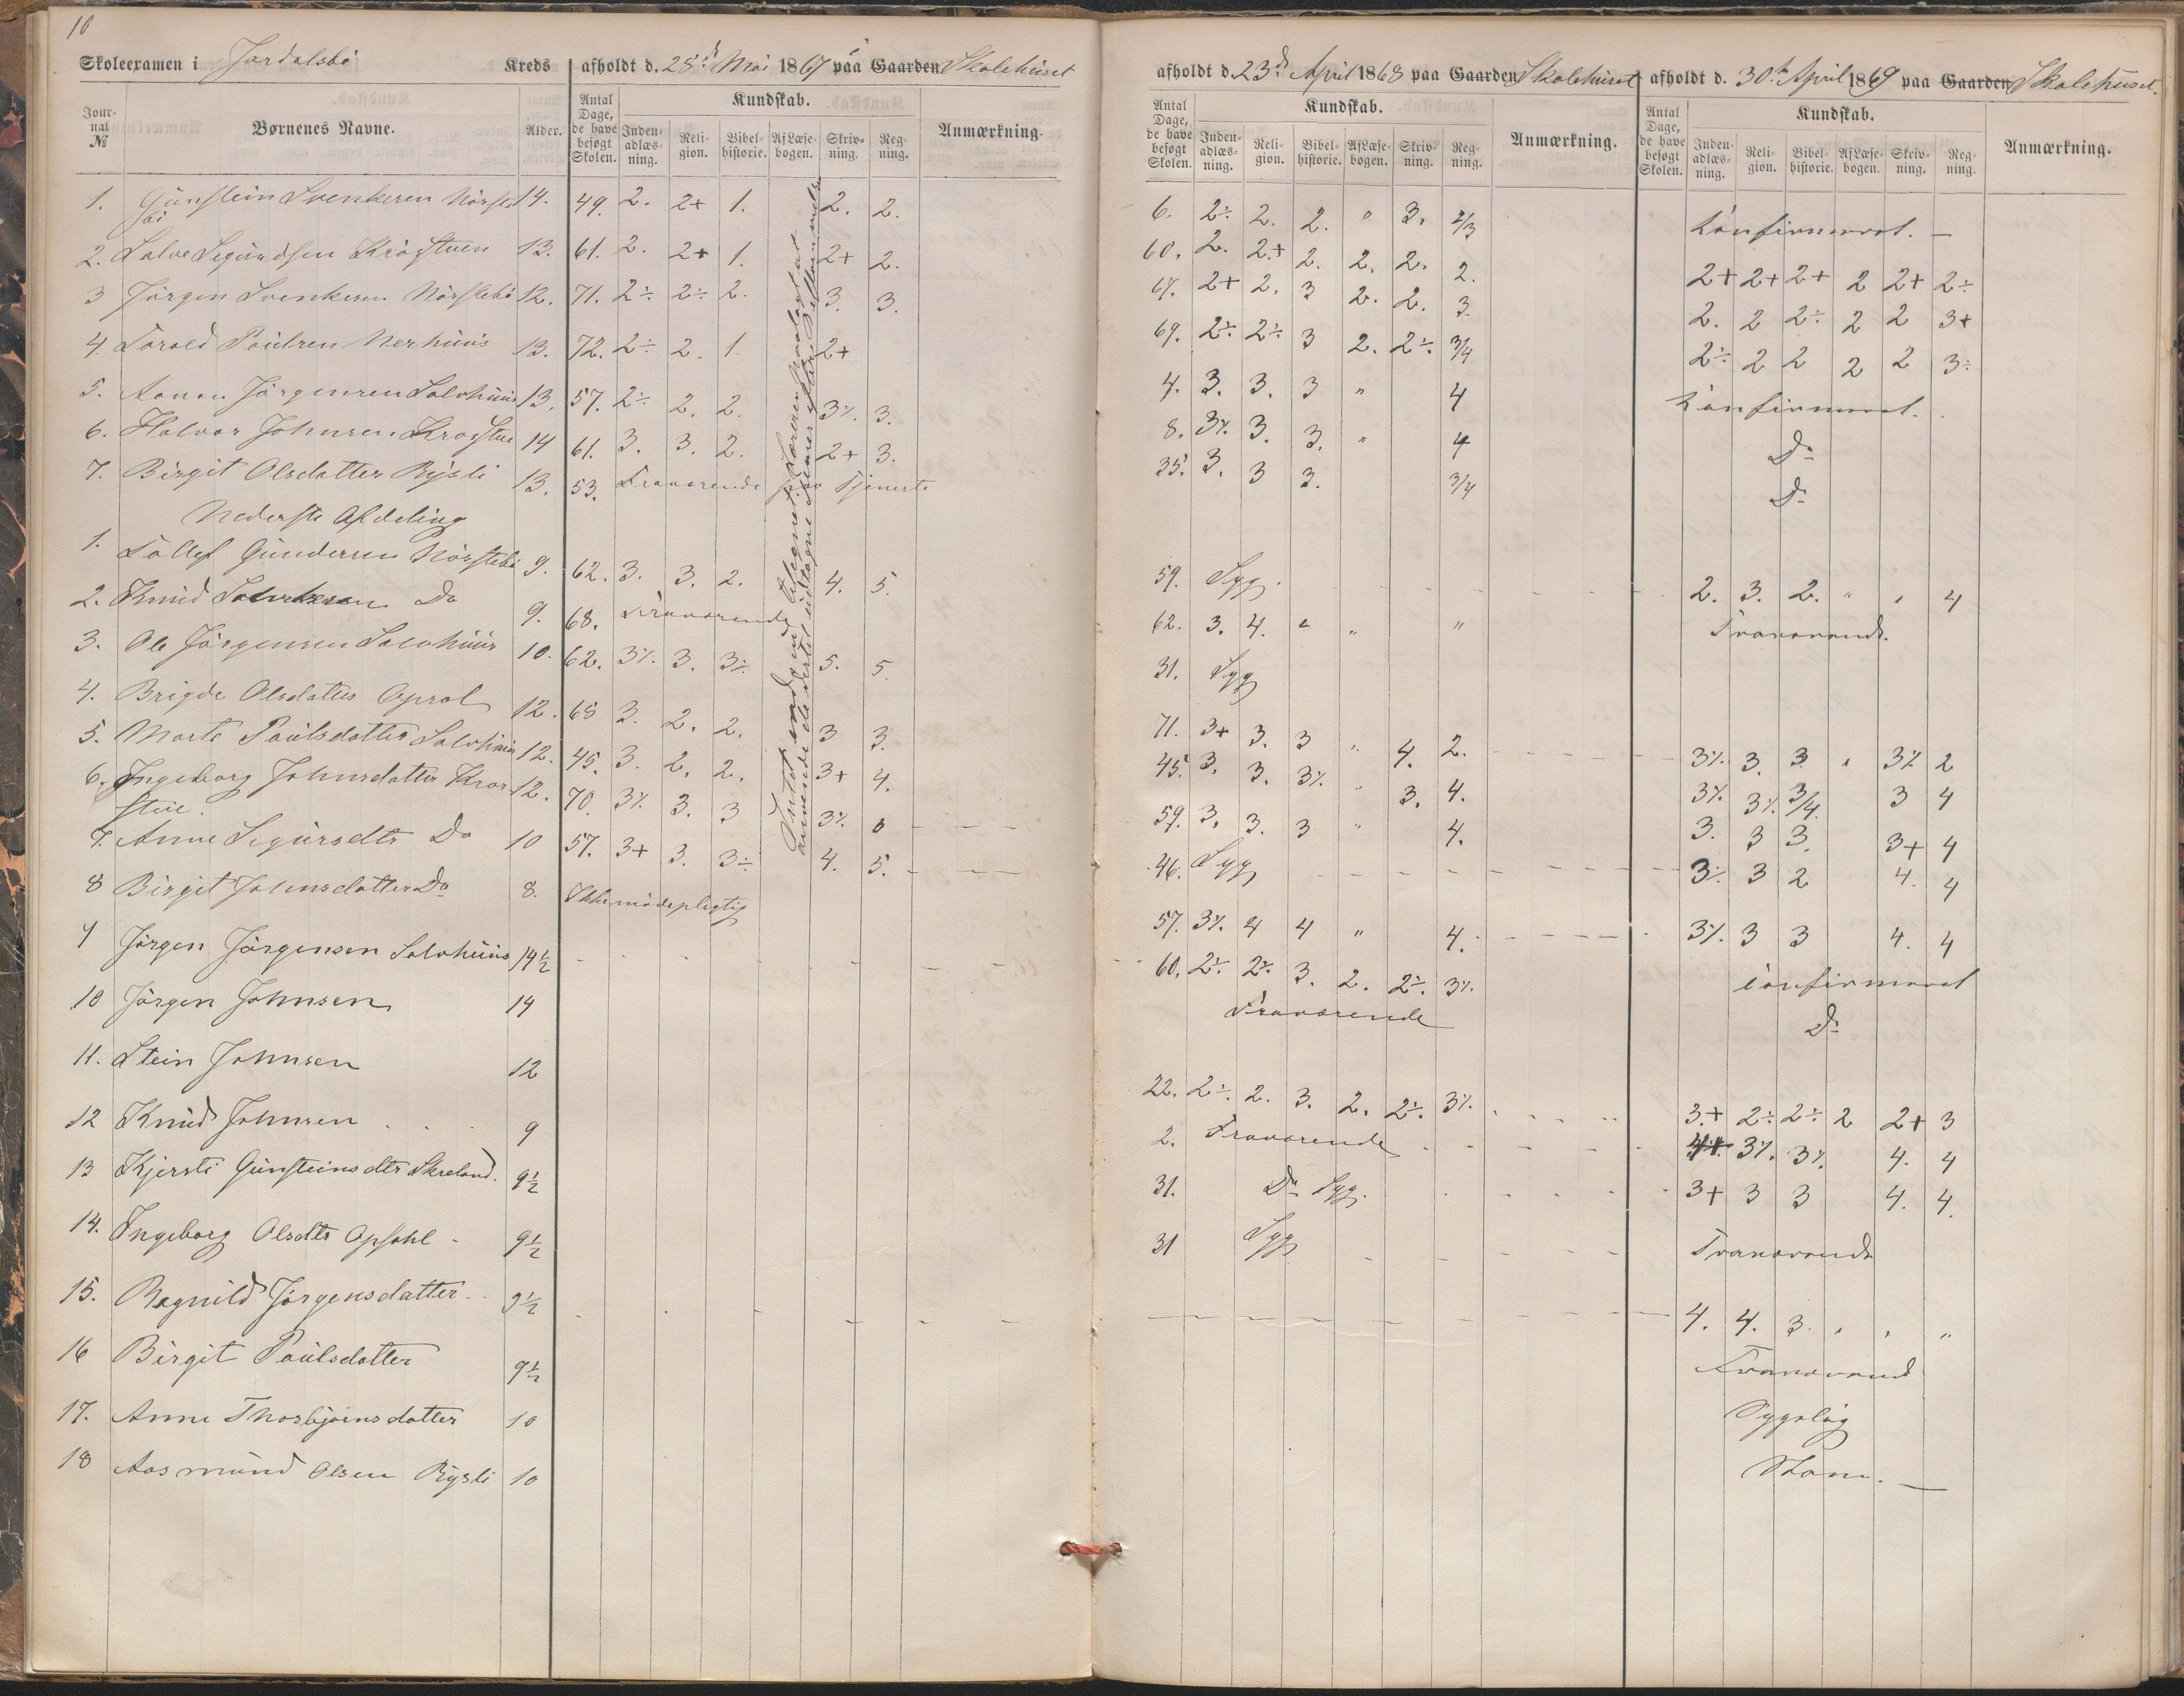 10
Skoleexamen i Jordalsbö Kreds afholdt d. 28de Mai 1867 paa Gaarden Skolehuset
afholdt d. 23de April 1868 paa Gaarden Skolehuset afholdt d. 30te April 1869 paa Gaarden Skolehuset.
Jour-nal № Børnenes Navne. Alder. Antal Dage, de have besøgt Skolen. Kundskab. Inden-adlæs-ning. Reli-gion. Bibel-historie. Af Læse-bogen. Skriv-ning. Reg-ning. Anmærkning.
Antal Dage, de have besøgt Skolen. Kundskab. Inden-adlæs-ning. Reli-gion. Bibel-historie. Af Læse-bogen. Skriv-ning. Reg-ning. Anmærkning.
Antal Dage, de have besøgt Skolen. Kundskab. Inden-adlæs-ning. Reli-gion. Bibel-historie. Af Læse-bogen. Skriv-ning. Reg-ning. Anmærkning.
1. Gunstein Svenkesen Nörste 14. 49. 2. 2+ 1. 2. 2. 6. 2÷ 2. 2. " 3. 2/3 Konfirmeret. —
bö
2. Salve Sigurdsen KröGstuen 13. 61. 2. 2+ 1. 2+ 2. 60. 2. 2.+ 2. 2. 2. 2. 2+ 2+ 2+ 2 2+ 2÷
3 Jörgen Svenkesen Nörstebö 12. 71. 2÷ 2÷ 2. 3. 3. 67. 2+ 2. 3 2. 2. 3. 2. 2 2÷ 2 2 3+
4. Torald Poulsen Nerhuus 13. 72. 2÷ 2. 1. 2+ 69. 2÷ 2÷ 3 2. 2÷ 3/4 2÷ 2 2 2 2 3÷
5. Aanon Jörgensen Solvhuus 13. 57. 2÷ 2. 2. 3÷ 3. 4. 3. 3. 3 " 4 Konfirmeret.
6. Halvor Johnsen Krogstue 14 61. 3. 3. 2. 2+ 3. 8. 3÷ 3. 3. " 4 Do
7. Birgit Olsdatter Rysli 13. 53. Fraværende paa Tjeneste 35. 3. 3 3. 3/4 Do
Nederste Afdeling
1. Tollef Gundersen Nörstebö 9. 62. 3. 3. 2. 4. 5. 59. Syg. 2. 3. 2. " " 4
2. Knud Do 9. 68. Fraværende 62. 3. 4. " " " Fraværende.
3. Ole Jörgensen Solvhuus 10. 62. 3÷ 3. 3÷ 5. 5. 31. Syg
4. Brigde Olsdatter Opsal 12. 68 3. 2. 2. 3 3. 71. 3+ 3. 3 " 4. 2. 3÷ 3. 3 " 3÷ 2
5. Marte Poulsdatter Solvhuus 12. 45. 3. 2. 2. 3+ 4. 45. 3. 3. 3÷ " 3. 4. 3÷ 3÷ 3/4 3 4
6. Ingeborg Johnsdatter Krog 12. 70. 3÷ 3. 3 3÷ 59. 3. 3. 3 " 4. 3. 3 3. 3+ 4
stue.
7. Anne Sigursdtr Do 10 57. 3+ 3. 3÷ 4. 5. 46. Syg 3÷ 3 2 4. 4
8 Birgit Johnsdatter Do 8. Ikke mödepligtig 57. 3÷ 4 4 " 4. 3÷ 3 3 4. 4
9 Jörgen Jörgensen Solvhuus 14½ 60. 2÷ 2÷ 3. 2. 2÷ 3÷ Confirmeret
10 Jörgen Johnsen 14 Fraværende Do
11. Stein Johnsen 12 22. 2÷ 2. 3. 2. 2÷ 3÷ 3+ 2÷ 2÷ 2 2+ 3
12 Knud Johnsen 9 2. Fraværende 4+ 3÷ 3÷ 4. 4
13 Kjersti Gunsteinsdtr Skreland. 9½ 31. Do Syg. 3+ 3 3 4. 4.
14. Ingeborg Olsdtr Opsahl 9½ 31 Syg Fraværende
15. Ragnild Jörgensdatter 9½ 4. 4. 3. " " "
16 Birgit Poulsdatter 9½ Fraværend
17. Anne Thorbjörnsdatter 10 Sygelig
18 Aasmund Olsen Rysli 10 Stam. —